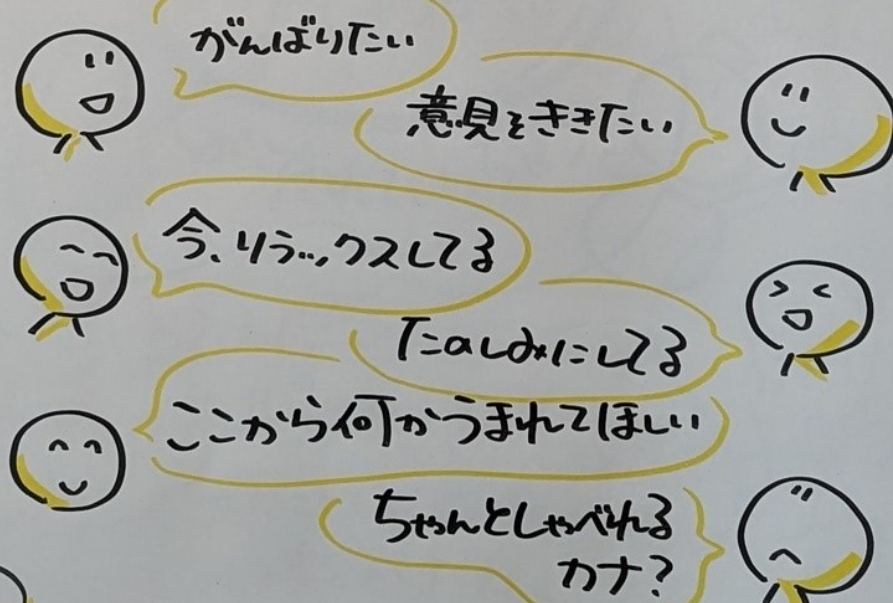 がんばりたい
意見をききたい
今、リラックスしてる
たのしみにしてる
ここから何かうまれてほしい
ちゃんとしゃべれる
カナ?